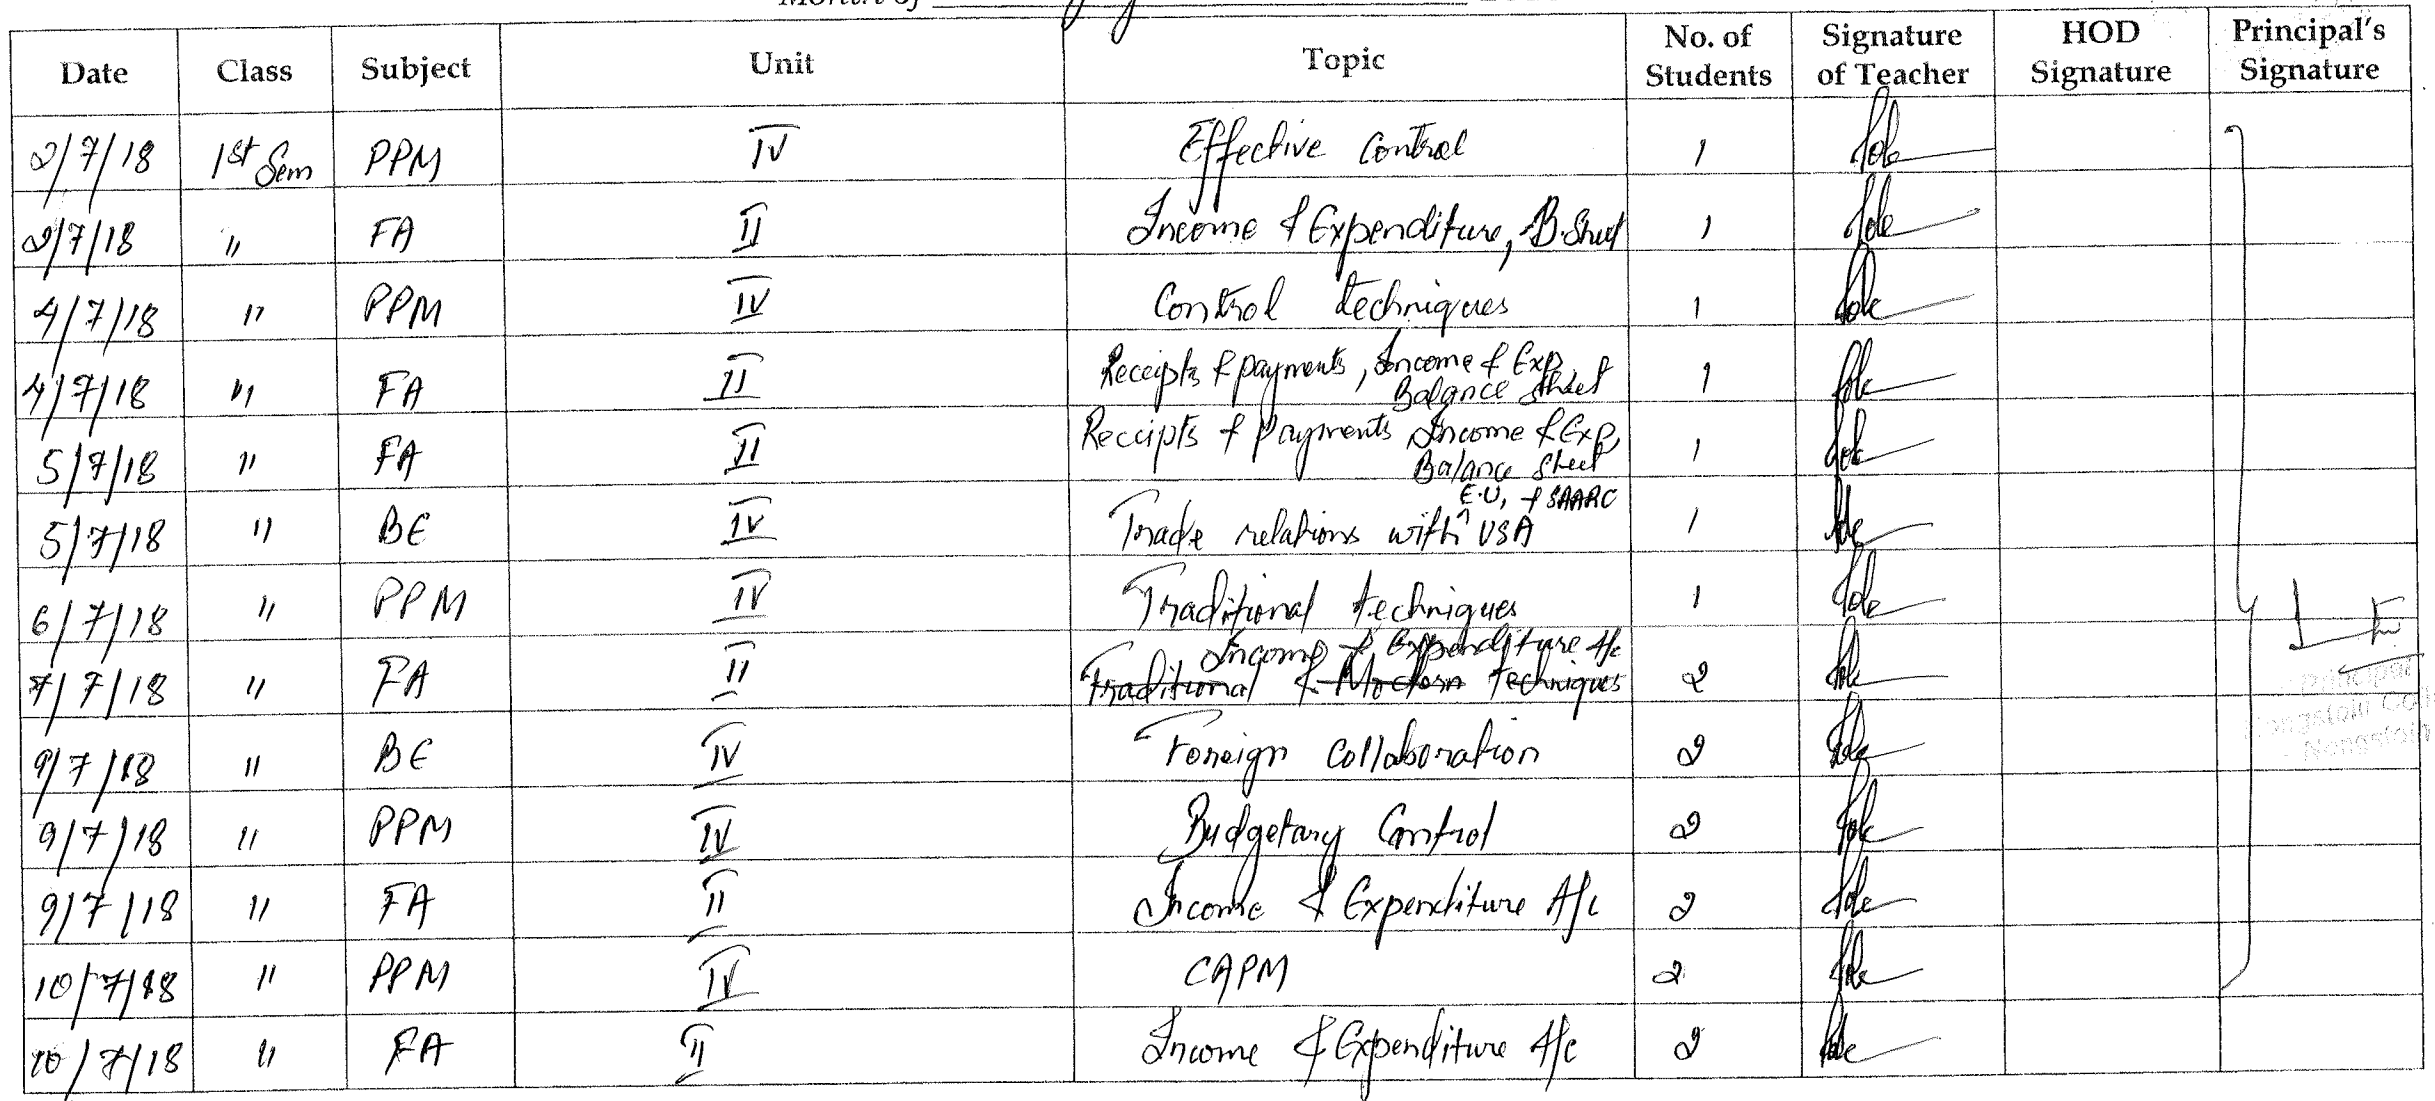 Month of
Date Class Subject Unit Topic No. of Students Signature of Teacher HOD Signature Principal's Signature
2/7/18 1st Sem PPM IV Effective Control 1
2/7/18 " FA II Income & Expenditure, B.Sheet 1
4/7/18 " PPM IV Control techniques 1
4/7/18 " FA II Receipts & payments, Income & Exp, Balance Sheet 1
5/7/18 " FA II Receipts & Payments Income & Exp, Balance Sheet 1
5/7/18 " BE IV Trade relations with ^ E.U, & SAARC USA 1
6/7/18 " PPM IV Traditional techniques 1
7/7/18 " FA II Income & Expenditure A/c Traditional & Modern Techniques 2
9/7/18 " BE IV Foreign Collaboration 2
9/7/18 " PPM IV Budgetary Control 2
9/7/18 " FA II Income & Expenditure A/c 2
10/7/18 " PPM IV CAPM 2
10/7/18 " FA II Income & Expenditure A/c 2
Principal